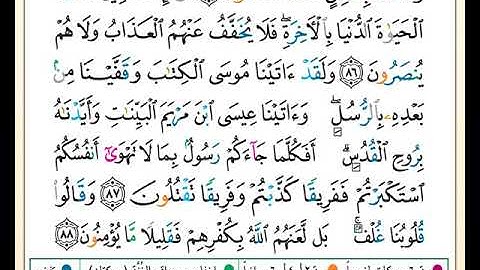 ٱلْحَيَوٰةَ ٱلدُّنْيَا بِٱلْأَخِرَةِ ۖ فَلَا يُخَفَّفُ عَنْهُمُ ٱلْعَذَابُ وَلَا هُمْ
يُنصَرُونَ ٨٦ وَلَقَدْ ءَاتَيْنَا مُوسَى ٱلْكِتَٰبَ وَقَفَّيْنَا مِنۢ
بَعْدِهِۦ بِٱلرُّسُلِ ۖ وَءَاتَيْنَا عِيسَى ٱبْنَ مَرْيَمَ ٱلْبَيِّنَٰتِ وَأَيَّدْنَٰهُ
بِرُوحِ ٱلْقُدُسِ ۗ أَفَكُلَّمَا جَآءَكُمْ رَسُولٌۢ بِمَا لَا تَهْوَىٰٓ أَنفُسُكُمُ
ٱسْتَكْبَرْتُمْ فَفَرِيقًا كَذَّبْتُمْ وَفَرِيقًا تَقْتُلُونَ ٨٧ وَقَالُوا۟
قُلُوبُنَا غُلْفٌۢ ۚ بَل لَّعَنَهُمُ ٱللَّهُ بِكُفْرِهِمْ فَقَلِيلًا مَّا يُؤْمِنُونَ ٨٨